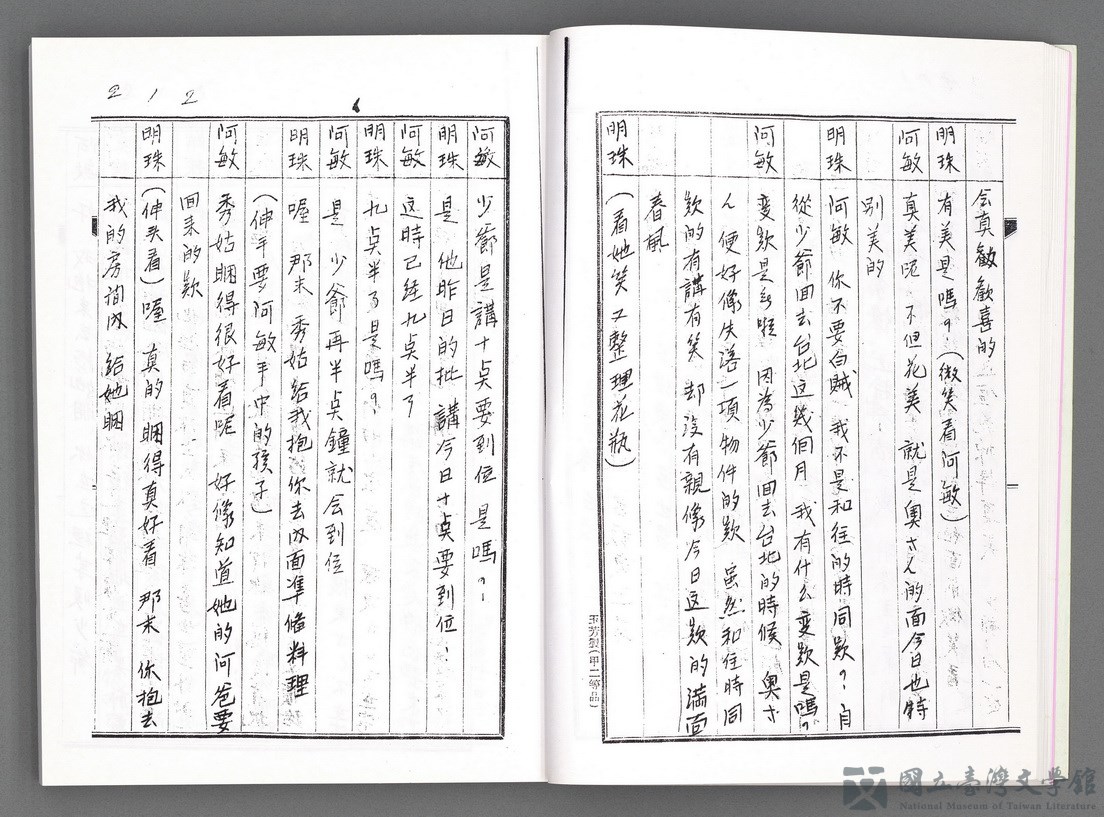 会真歡歡喜的
明珠 有美是嗎？（微笑看阿敏）
阿敏 真美呢 不但花美 就是奧サン的面今日也特
別美的
明珠 阿敏 你不要白賊 我不是和往的時同款？自
從少爺回去台北这幾個月 我有什么变款是嗎？
阿敏 变款是 因為少爺回去台北的時候 奧サ
ン便好像失落一項物件的款 虽然和往時同
款的有講有笑 却没有親像今日这款的滿面
春風
明珠 （看她笑又整理花瓶）
玉芳製（甲二等品）
212
阿敏 少爺是講十点要到位 是嗎？
明珠 是 他昨日的批 講今日十点要到位，
阿敏 这時已経九点半了
明珠 九点半了是嗎？
阿敏 是 少爺再半点鐘就会到位
明珠 喔 那末 秀姑給我抱 你去内面準備料理
（伸手要阿敏手中的孩子）
阿敏 秀姑睏得很好看呢 好像知道她的阿爸要
回来的款
明珠 （伸头看）喔 真的 睏得真好看 那末 你抱去
我的房間内 給她睏
國立臺灣文學館
National Museum of Taiwan Literature